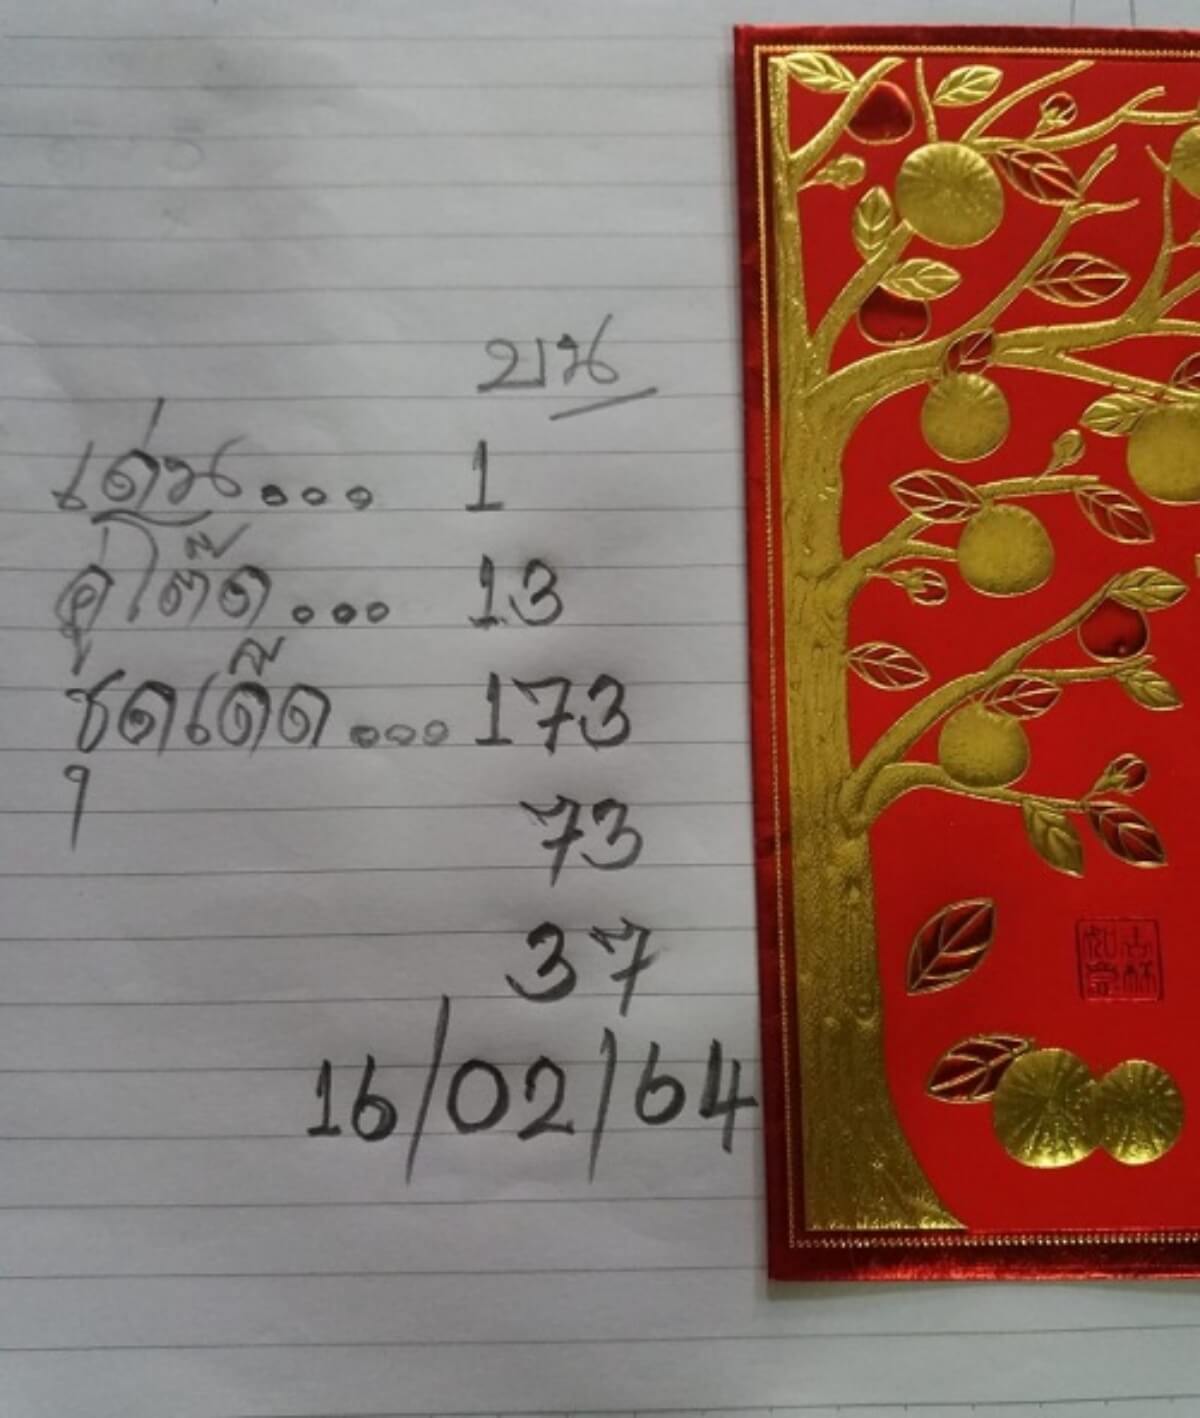 บน
เด่น... 1
คู่โต๊ด... 13
ชุดเด็ด... 173
73
37
16/02/64